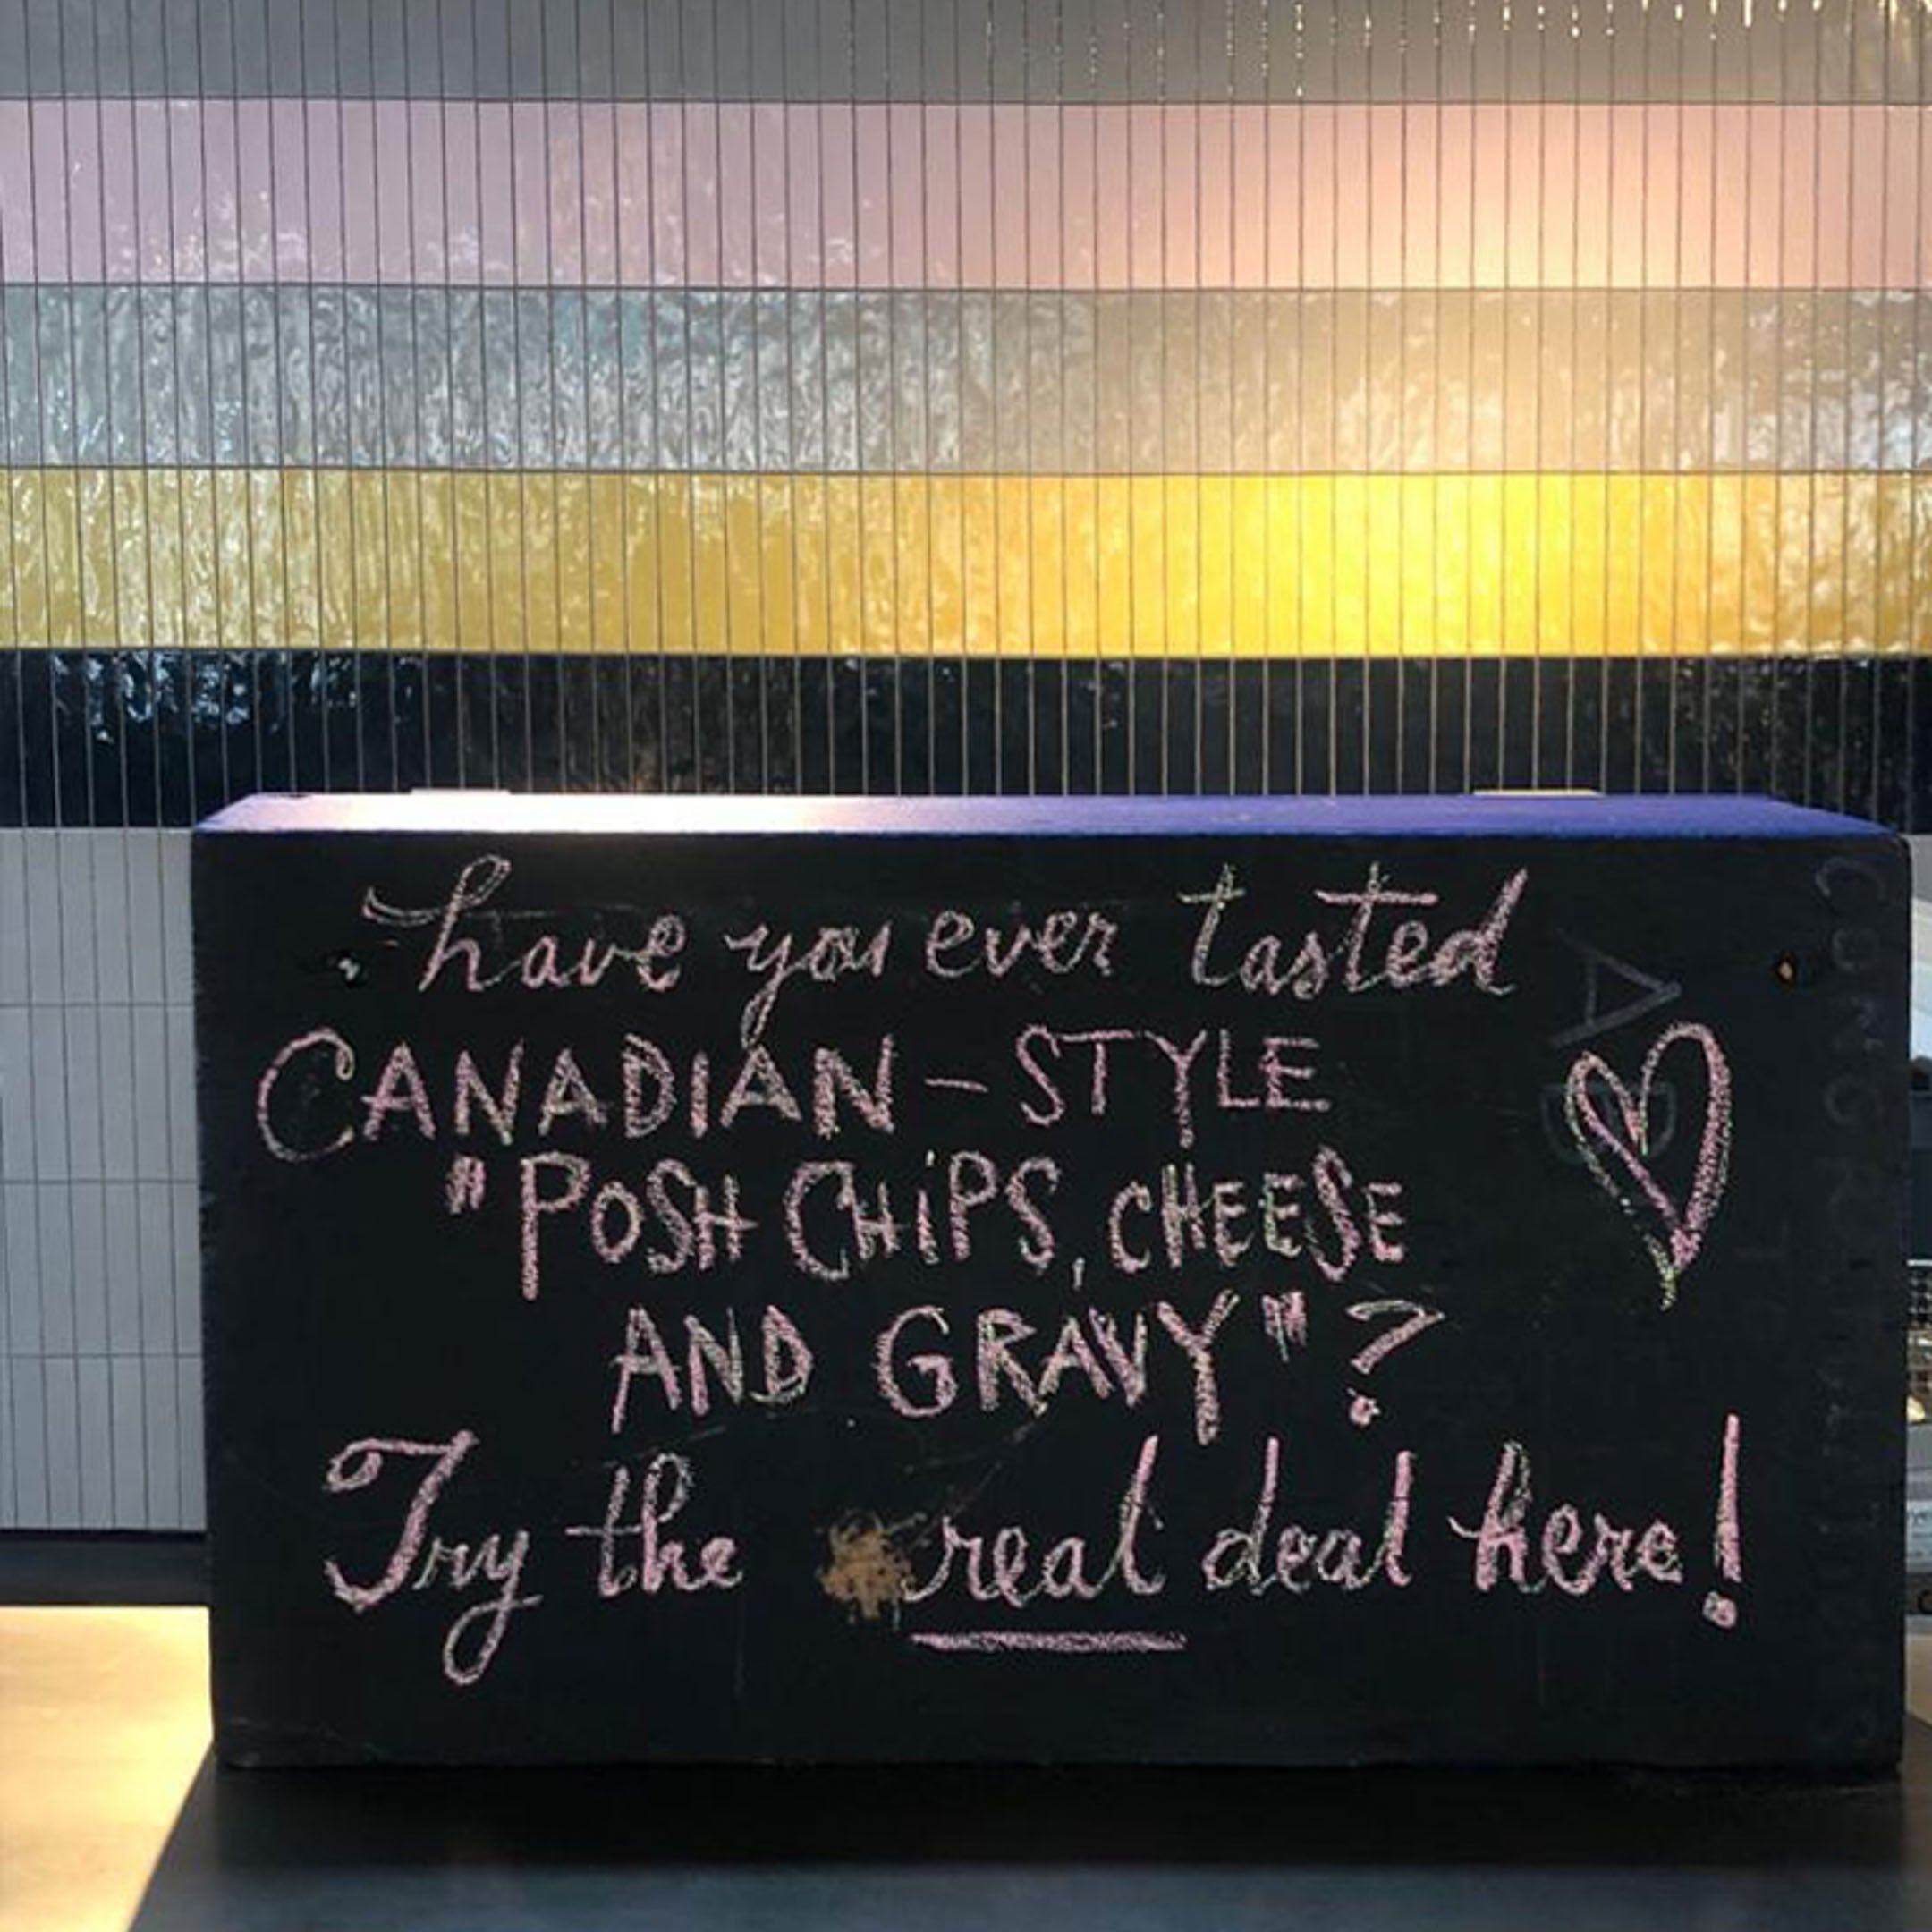 have you ever tasted
CANADIAN - STYLE
"POSH CHiPS, CHEESE
AND GRAVY"?
Try the real deal here!